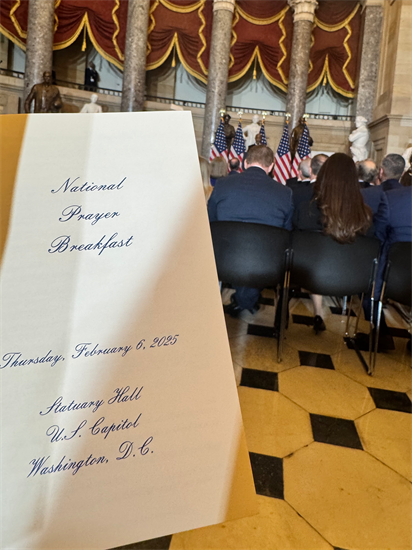 National
Prayer
Breakfast
Thursday, February 6, 2025
Statuary Hall
U.S. Capitol
Washington, D.C.